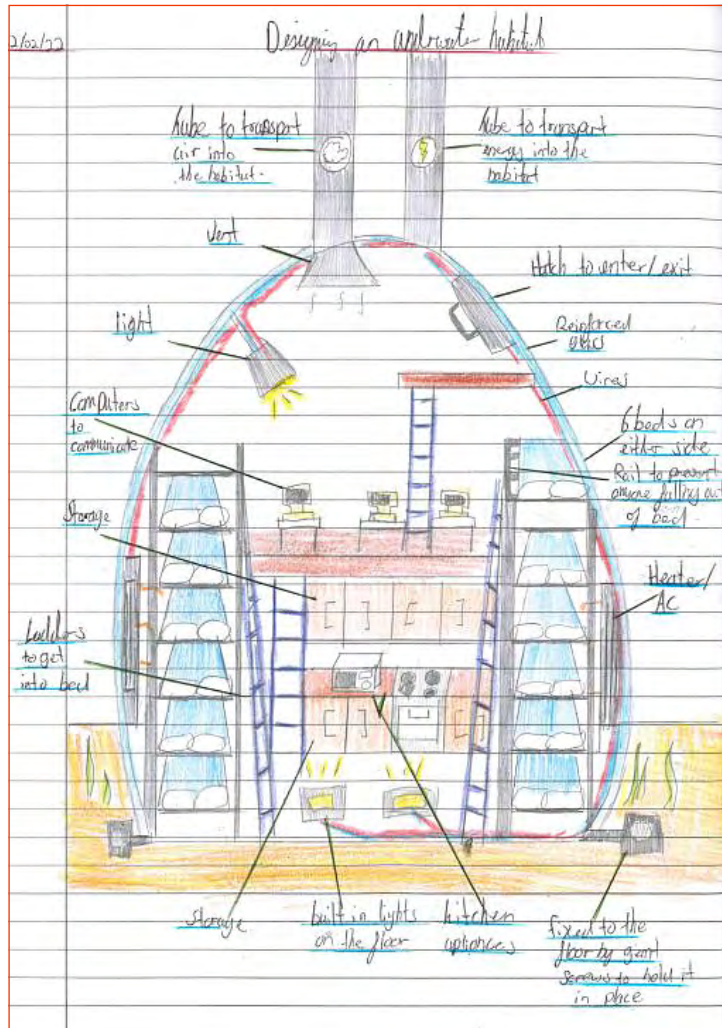 2/02/22
Designing an underwater habitat
tube to transport
air into
the habitat.
tube to transport
energy into the
habitat
Vent
Hatch to enter/exit
light
Reinforced
Wires
Computers
to
communicate
6 beds on
either side
Rail to prevent
anyone falling out
of bed
Storage
Heater/
AC
Ladders
to get
into bed
Storage
built in lights
on the floor
kitchen
appliances
fixed to the
floor by giant
screws to hold it
in place